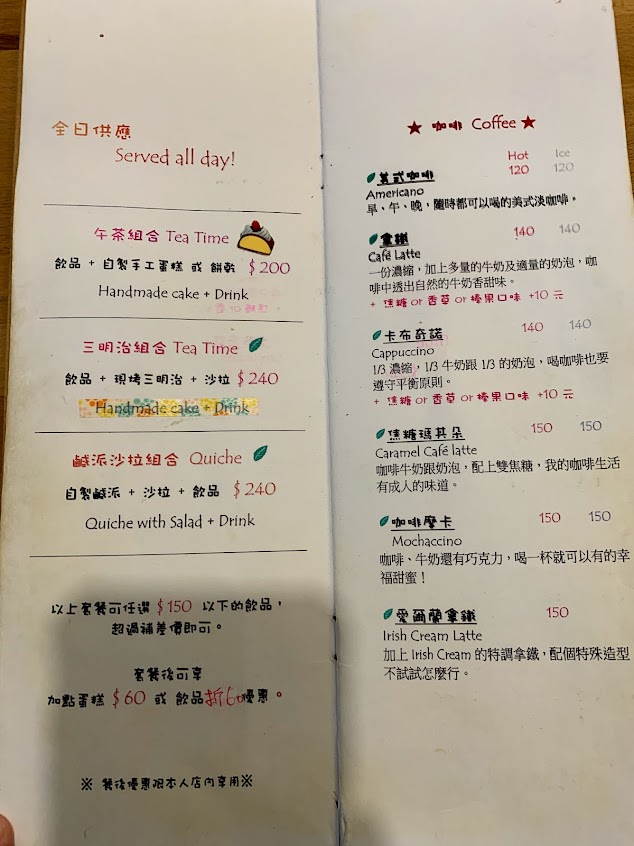 全日供應
Served all day!
午茶組合 Tea Time
飲品 + 自製手工蛋糕 或 餅乾 $200
Handmade cake + Drink
三明治組合 Tea Time
飲品 + 現烤三明治 + 沙拉 $240
Handmade cake + Drink
鹹派沙拉組合 Quiche
自製鹹派 + 沙拉 + 飲品 $240
Quiche with Salad + Drink
以上套餐可任選 $150 以下的飲品，
超過補差價即可。
套餐後可享
加點蛋糕 $60 或 飲品折60優惠。
※ 餐後優惠限本人店內享用※
★ 咖啡 Coffee ★
Hot Ice
美式咖啡 120 120
Americano
早、午、晚，隨時都可以喝的美式淡咖啡。
拿鐵 140 140
Café Latte
一份濃縮，加上多量的牛奶及適量的奶泡，咖
啡中透出自然的牛奶香甜味。
+ 焦糖 or 香草 or 榛果口味 +10 元
卡布奇諾 140 140
Cappuccino
1/3 濃縮，1/3 牛奶跟 1/3 的奶泡，喝咖啡也要
遵守平衡原則。
+ 焦糖 or 香草 or 榛果口味 +10 元
焦糖瑪其朵 150 150
Caramel Café latte
咖啡牛奶跟奶泡，配上雙焦糖，我的咖啡生活
有成人的味道。
咖啡摩卡 150 150
Mochaccino
咖啡、牛奶還有巧克力，喝一杯就可以有的幸
福甜蜜！
愛爾蘭拿鐵 150
Irish Cream Latte
加上 Irish Cream 的特調拿鐵，配個特殊造型
不試試怎麼行。